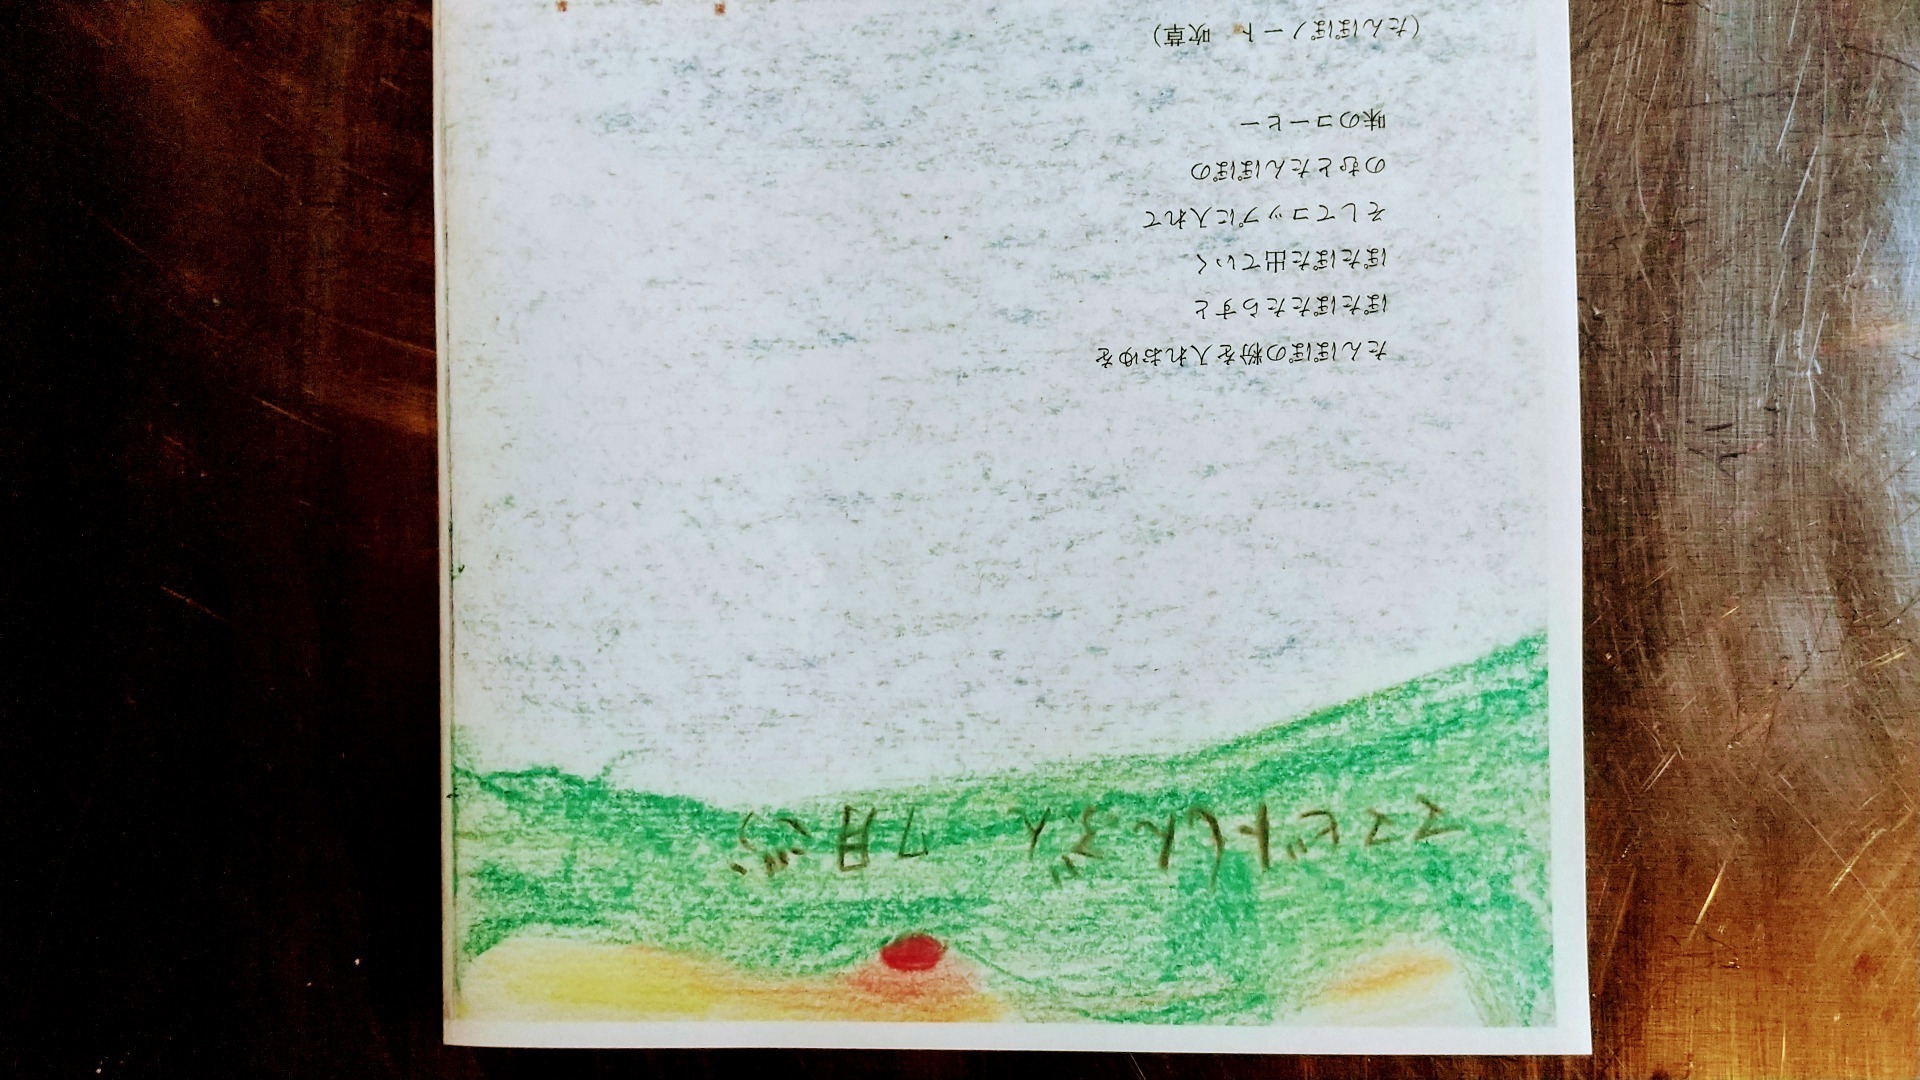 しんぶん 7月ごう
たんぽぽの粉を入れおゆを
ぽたぽたたらすと
ぽたぽた出ていく
そしてコップに入れて
のむとたんぽぽの
味のコーヒー
(たんぽぽノート 吹草)